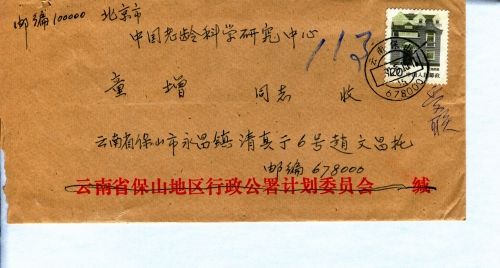 邮编100000 北京市
中国老龄科学研究中心
113
童增 同志 收
云南省保山市永昌镇清真寺6号趙文昌托
邮编 678000
云南省保山地区行政公署计划委员会 缄
云南保山
678000